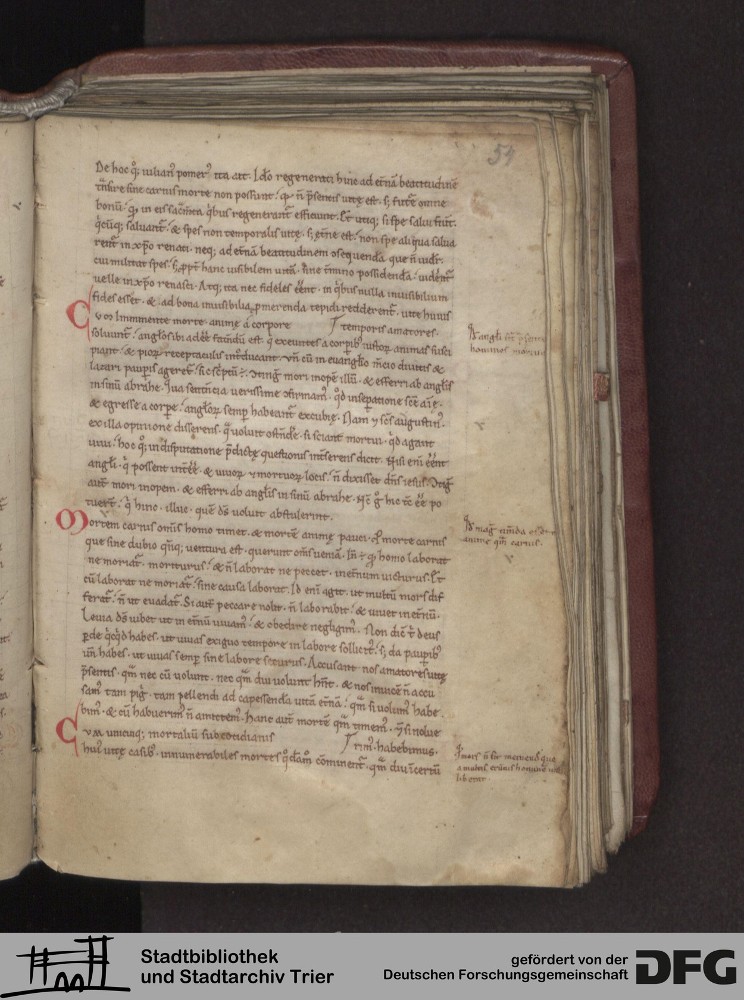 54
De hoc q; iulian' pomeri' ita ait. Ideo regenerati hinc ad etnā beatitudinē
tnsire sine carnis morte non possunt. qd n̄ psentis uitę est. s; futurę omne
bonū. qd in eis sacmta qibus regenerant' efficiunt. Et utiq; si spe salui sum'.
saluant'. & spes non temporalis uitę. s; etnę est. non spe aliqua salua
rent' in xpo renati. neq; ad etnā beatitudinem osequenda que n̄ uidet'.
cui militat spes. s; ppt' hanc uisibilem uitā. sine tmino possidenda. uident'
uelle in xpo renasci. Atq; ita nec fideles eent. in qibus nulla inuisibilium
fides esset. & ad bona inuisibilia pmerenda tepidi redderent'. uitę huius
temporis amatores.
Cum imminente morte. animę a corpore
soluunt'. anglos ibi adeē factndū est. q exeuntes a corpib; iustor animas susci
piant. & pior receptaculis introducant. un̄ cū in euanglio mcio diuitis &
lazari paupis ageret'. sic scptū ē. otingit mori inopē illū. & efferri ab anglis
in sinū abrahę. Qua sententia uerissime ofirmam'. qd in sepatione scē aīę.
& egressę a corpe. anglor semp habeant' excubię. Nam & scs augustin'
ex illa opinione disserens. qd uoluit ostendē. si sciant mortui. qd agant
uiui. hoc q; in disputatione pdictę questionis inserens dicit. Nisi eni eent
angli. q possent intēē & uiuor & mortuor locis. n̄ dixisset dn̄s iesus. otigit
aut mori inopem. & efferri ab anglis in sinū abrahę. Nc g hic nc ibi eē po
tuert. q hinc illuc. quē ds uoluit abstulerint.
Mortem carnis omis homo timet. & mortē animę pauci. p morte carnis
que sine dubio qnq; uentura est. querunt oms ueniā. In ē qd homo laborat
ne moriat'. moriturus. & n̄ laborat ne peccet. in etnum uicturus. Et
cū laborat ne moriat'. sine causa laborat. Id eni agit. ut multū mors dif
ferat'. n̄ ut euadat'. Si aut peccare nolit. n̄ laborabit. & uiuet in etnū.
Leuia ds iubet ut in etnū uiuam'. & obedire negligim'. Non dic t deus
pde qcqd habes. ut uiuas exiguo tempore in labore sollicit'. s; da paupib'
un̄ habes. ut uiuas semp sine labore securus. Accusant nos amatores uitę
psentis. qm nec cū uolunt. nec qm diu uolunt hnt. & nos inuicē n̄ accu
sam' tam pig'. tam pellendi ad capessendā uitā etnā. qm si uolum' habe
bim'. & cū habuerim' n̄ amittem'. hanc aut mortē qm timem'. & si nolue
rim'. habebimus.
Cum unicuiq; mortaliū sub cotidianis
hui' uitę casib'. innumerabiles mortes qdam cominent'. qm diu incertū
Qd angli
homines
Qd mag' timēda
animę qm carnis.
Qd mors n̄ sit metuenda que
a multis
liberat
Stadtbibliothek
und Stadtarchiv Trier
gefördert von der
Deutschen Forschungsgemeinschaft
DFG